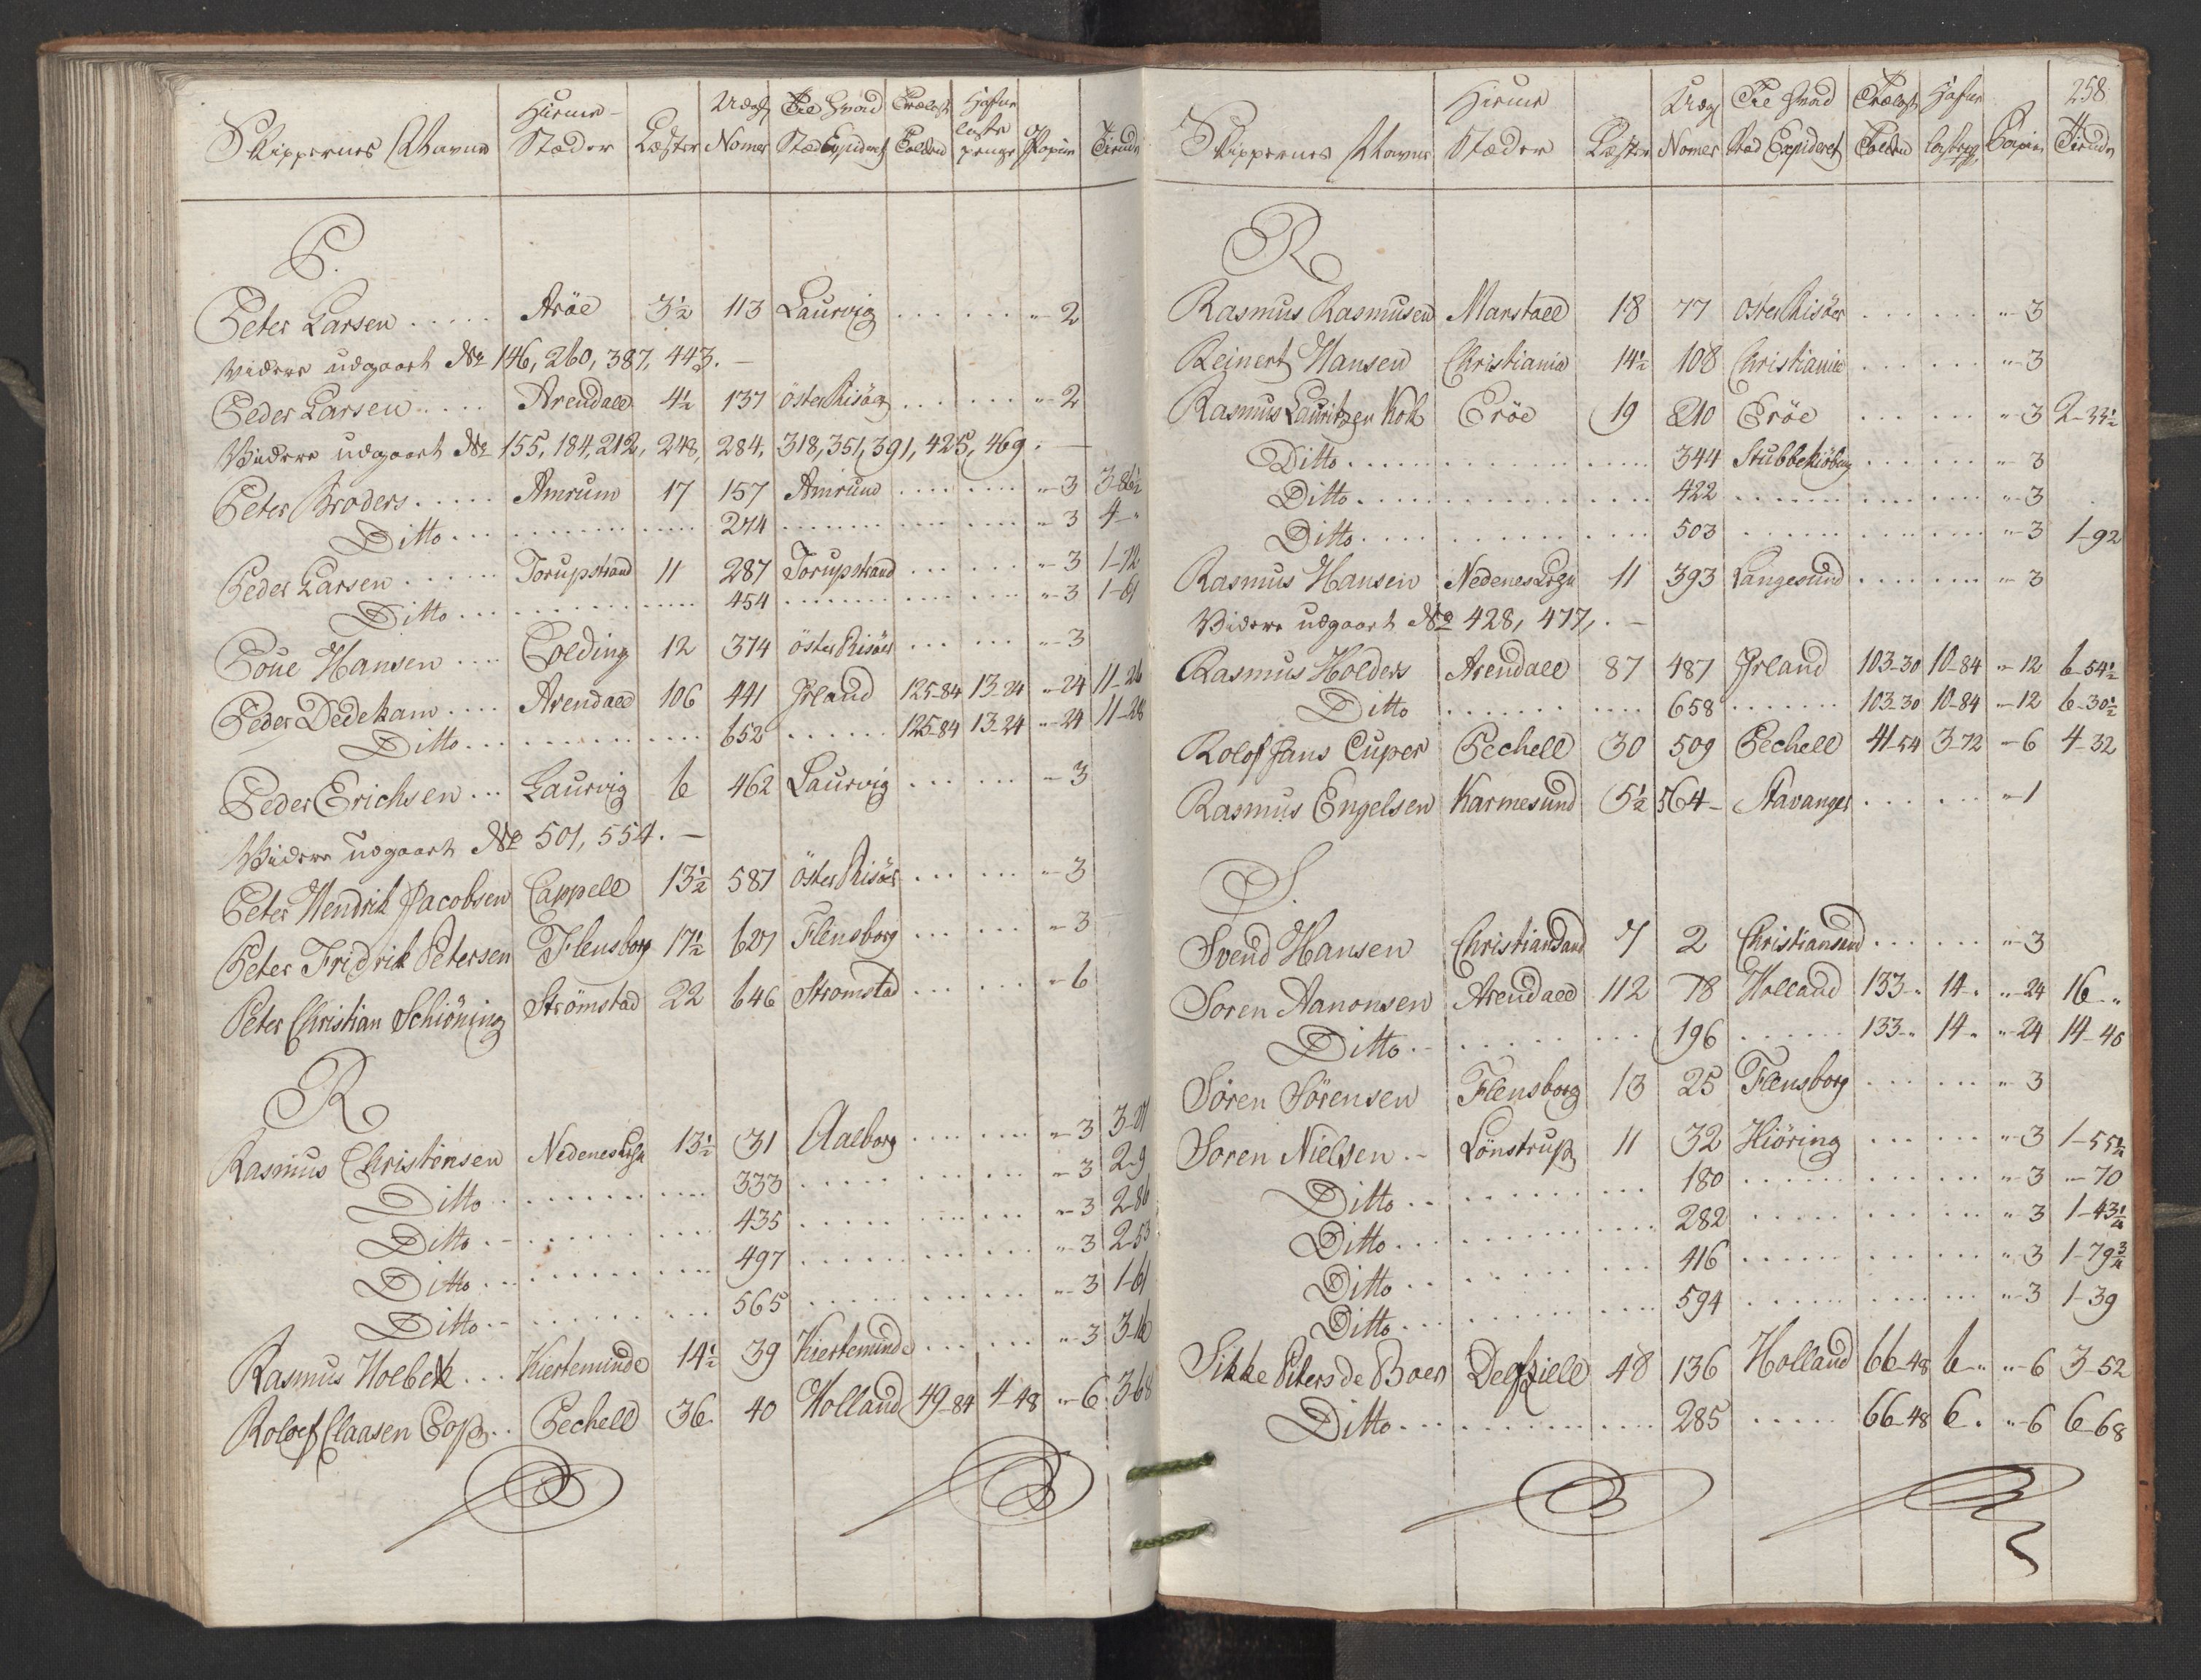 Skippernes Navne Hieme- Stæder Læster Udg: Nomer Til Hvad Stæd Expideret Trælast Tolden Hafne laste penge Papiir Tiende
P.
Peter Larsen ..... Aröe 3½ 113 Laurvig ...... "-2
Videre udgaaet No 146, 260, 387, 443. —
Peder Larsen ..... Arendall 4½ 137 Öster Risöer ...... "-2
Videre udgaaet No 155, 184, 212, 248, 284, 318, 351, 391, 425, 469. —
Peter Broders ..... Amrum 17 157 Amrum ...... "-3 3-86½
Ditto ...... 274 ...... "-3 4-"
Peder Larsen ..... Torupstrand 11 287 Torupstrand ...... "-3 1-72
Ditto ...... 454 ...... "-3 1-61
Poue Hansen .... Colding 12 374 öster Risöer ...... "-3
Peder Dedekam .... Arendall 106 441 Irland 125-84 13-24 "-24 11-26
Ditto ...... 652 ...... 125-84 13-24 "-24 11-28
Peder Erichsen ... Laurvig 6 462 Laurvig ...... "-3
Videre udgaaet No 501, 554. —
Peter Hendrik Jacobsen Cappell 13½ 587 Öster Risöer ...... "-3
Peter Fridrik Petersen Flensborg 17½ 627 Flensborg ...... "-3
Peter Christian Schiöning Strömstad 22 646 Stromstad ...... "-6
R
Rasmus Christensen Nedenes Lehn 13½ 31 Aalborg ...... "-3 3-21
Ditto ...... 333 ...... "-3 2-9
Ditto ...... 435 ...... "-3 2-86
Ditto ...... 497 ...... "-3 2-53
Ditto ...... 565 ...... "-3 1-61
Rasmus Holbek ... Kierteminde 14½ 39 Kierteminde ...... "-3 3-16
Rolof Claasen Pop .. Pechell 36 40 Holland 49-84 4-48 "-6 3-68
258
Skippernes Navne Hieme Stæder Læster Udg: Nomer Til Hvad Stæd Expideret Trælast Tolden Hafne Papiir Tiende
R
Rasmus Rasmusen Marstall 18 77 Öster Risöer ...... "-3
Reinert Hansen Christiania 14½ 108 Christiania ...... "-3
Rasmus Lauritzen Kok Eröe 19 210 Eröe ...... "-3 2-33½
Ditto ...... 344 Stubbekiöbing ...... "-3
Ditto ...... 422 ...... "-3
Ditto ...... 503 ...... "-3 1-92
Rasmus Hansen Nedenes Lehn 11 393 Langesund ...... "-3
Videre udgaaet No 428, 477, . —
Rasmus Holders Arendall 87 487 Irland 103-30 10-84 "-12 6-54½
Ditto ...... 658 ...... 103-30 10-84 "-12 6-30½
Rolof Jans Cuper Pechell 30 509 Pechell 41-54 3-72 "-6 4-32
Rasmus Engelsen Karmesund 5½ 564 Stavanger ...... "-1
S.
Svend Hansen Christiansand 7 2 Christiansand ...... "-3
Soren Aanonsen Arendall 112 78 Holland 133-" 14-" "-24 16-"
Ditto ...... 196 ...... 133-" 14-" "-24 14-46
Sören Sörensen Flensborg 13 25 Flensborg ...... "-3
Soren Nielsen .. Lönstrup 11 32 Hiöring ...... "-3 1-55½
Ditto ...... 180 ...... "-3 "-70
Ditto ...... 282 ...... "-3 1-43¼
Ditto ...... 416 ...... "-3 1-79¾
Ditto ...... 594 ...... "-3 1-39
Sikke Piters de Boer Delfziell 48 136 Holland 66-48 6-" "-6 3-52
Ditto ...... 285 ...... 66-48 6-" "-6 6-68